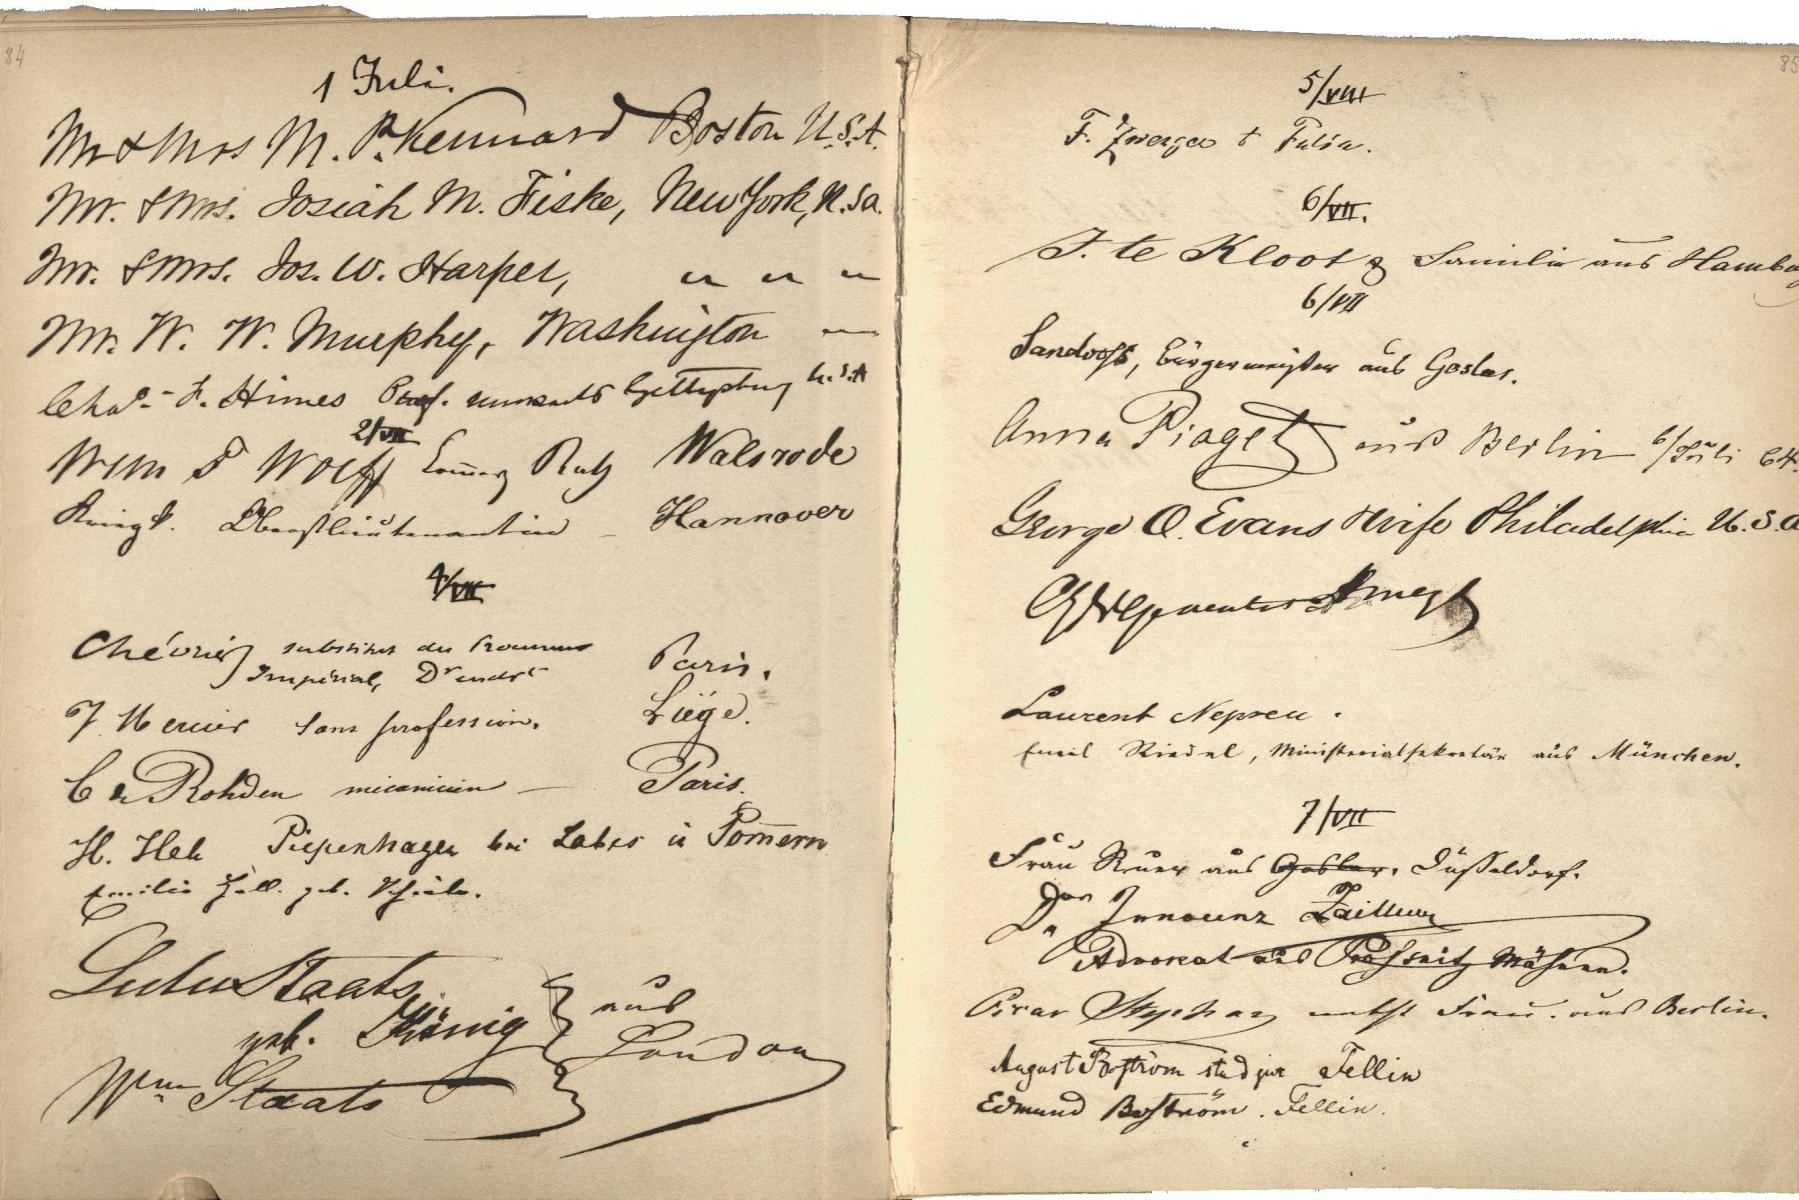 84
1 Juli.
Mr & Mrs M. P. Kennard Boston U.S.A.
Mr. & Mrs. Josiah M. Fiske, New York, U.S.A.
Mr. & Mrs. Jos. W. Harper, " " "
Mr. W. W. Murphy, Washington "
Chas. F. Himes Prof. Gettysburg U.S.A
2/VII
Wm F Wolff Walsrode
Oberstlieutenantin – Hannover
4/VII
Chévrier substitut du Procureur
Impérial, Paris.
J. Mercier sans profession. Liége.
C de Rohden mécanicien – Paris.
H. Hell Piepenhagen bei Labes in Pom̄ern
Emilie Hell. geb.
Lulu Staats
geb. König aus
London
Wm Staats
85
5/VIII
F. Zwerger
6/VII.
J. te Kloot & Familie aus Hamburg
6/VII
Sandvoß, Bürgermeister aus Goslar.
Anna Piaget aus Berlin 6/Juli 64.
George O. Evans & Wife Philadelphia U.S.A
Laurent Nepveu.
Emil Riedel, Ministerialsekretär aus München.
7/VII
Frau aus Goslar. Düsseldorf.
Dr Innocenz
Advokat aus Prossnitz Mähren.
Oscar Stephan nebst Frau. aus Berlin.
August Boström stud jur Fellin
Edmund Boström. Fellin.